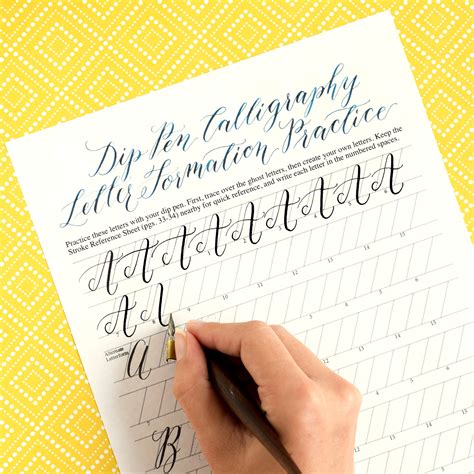 Dip Pen Calligraphy
Letter Formation Practice
Practice these letters with your dip pen. First, trace over the ghost letters, then create your own letters. Keep the
Stroke Reference Sheet (pgs. 33-34) nearby for quick reference, and write each letter in the numbered spaces.
A A A A A A A A A
A A
Alternate
Letterform
A
B